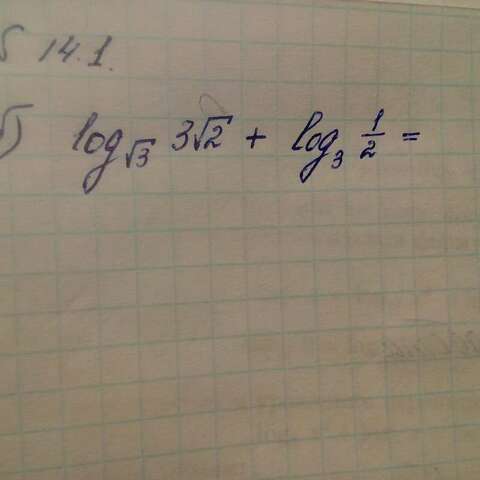 14.1.
б) log_√3 3√2 + log_3 1/2 =